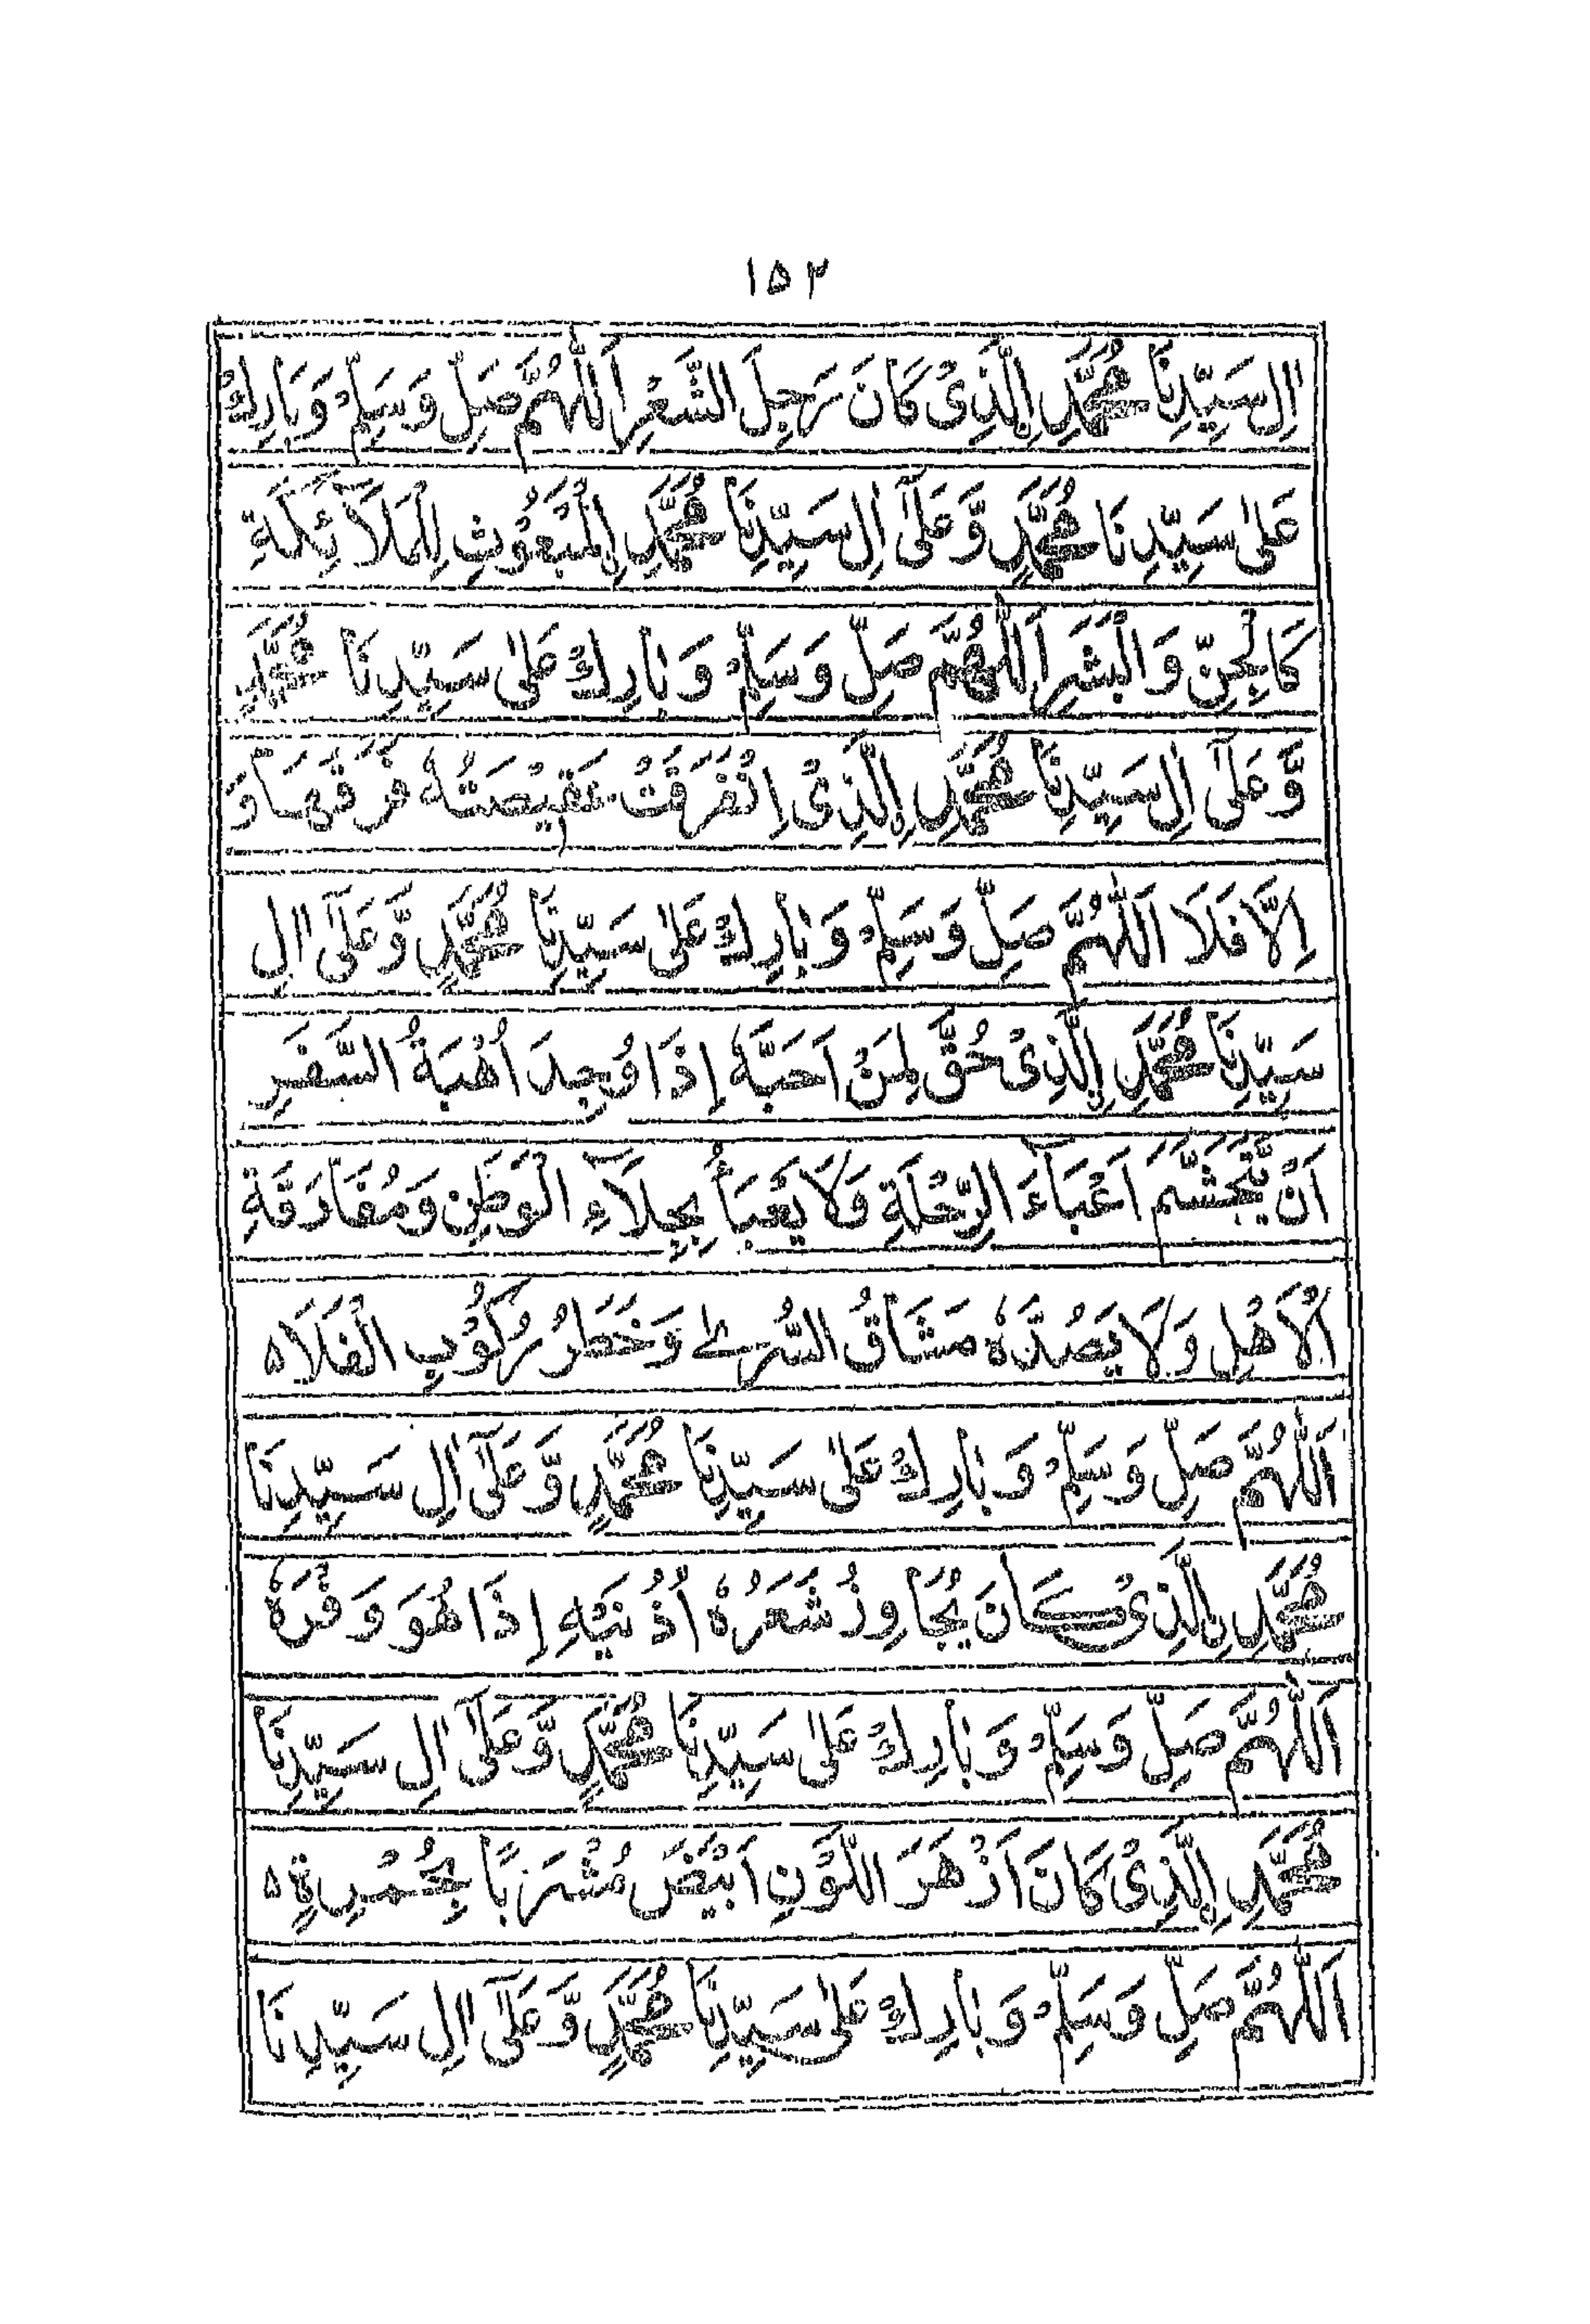 ١٥٢
اٰلِ سَيِّدِنَا مُحَمَّدِ اِلَّذِىْ كَانَ رَجِلَ الشَّعْرِ اَللّٰهُمَّ صَلِّ وَسَلِّمْ وَبَارِكْ
عَلٰى سَيِّدِنَا مُحَمَّدٍ وَّعَلٰٓى اٰلِ سَيِّدِنَا مُحَمَّدِ اِلْمَبْعُوْثِ لِلْمَلَآئِكَةِ
كَالْجِنِّ وَالْبَشَرِ اَللّٰهُمَّ صَلِّ وَسَلِّمْ وَبَارِكْ عَلٰى سَيِّدِنَا مُحَمَّدٍ
وَّعَلٰٓى اٰلِ سَيِّدِنَا مُحَمَّدِ اِلَّذِىْ اِنْفَرَقَتْ عَقِيْصَتُهٗ فَرَقَهَا وَ
اِلَّا فَلَا اَللّٰهُمَّ صَلِّ وَسَلِّمْ وَبَارِكْ عَلٰى سَيِّدِنَا مُحَمَّدٍ وَّعَلٰٓى اٰلِ
سَيِّدِنَا مُحَمَّدِ اِلَّذِىْ حُقَّ لِمَنْ اَحَبَّهٗ اِذَا وُجِدَ اُهْبَةُ السَّفَرِ
اَنْ يَّتَجَشَّمَ اَعْبَآءَ الرِّحْلَةِ وَلَا يَعْبَأُ بِجِلَآءِ الْوَطَنِ وَمُفَارَقَةِ
الْاَهْلِ وَلَا يَصُدَّهٗ مَشَاقُّ السُّرٰے وَخَطَرُ رُكُوْبِ الْفَلَاہ
اَللّٰهُمَّ صَلِّ وَسَلِّمْ وَبَارِكْ عَلٰى سَيِّدِنَا مُحَمَّدٍ وَّعَلٰٓى اٰلِ سَيِّدِنَا
مُحَمَّدِ اِلَّذِىْ كَانَ يُجَاوِزُ شَعَرُهٗ اُذُنَيْهِ اِذَا هُوَ وَفْرَهٗ
اَللّٰهُمَّ صَلِّ وَسَلِّمْ وَبَارِكْ عَلٰى سَيِّدِنَا مُحَمَّدٍ وَّعَلٰٓى اٰلِ سَيِّدِنَا
مُحَمَّدِ اِلَّذِىْ كَانَ اَزْهَرَ اللَّوْنِ اَبْيَضَ مُشْرَبًا بِحُمْرَةٍ ہ
اَللّٰهُمَّ صَلِّ وَسَلِّمْ وَبَارِكْ عَلٰى سَيِّدِنَا مُحَمَّدٍ وَّعَلٰٓى اٰلِ سَيِّدِنَا